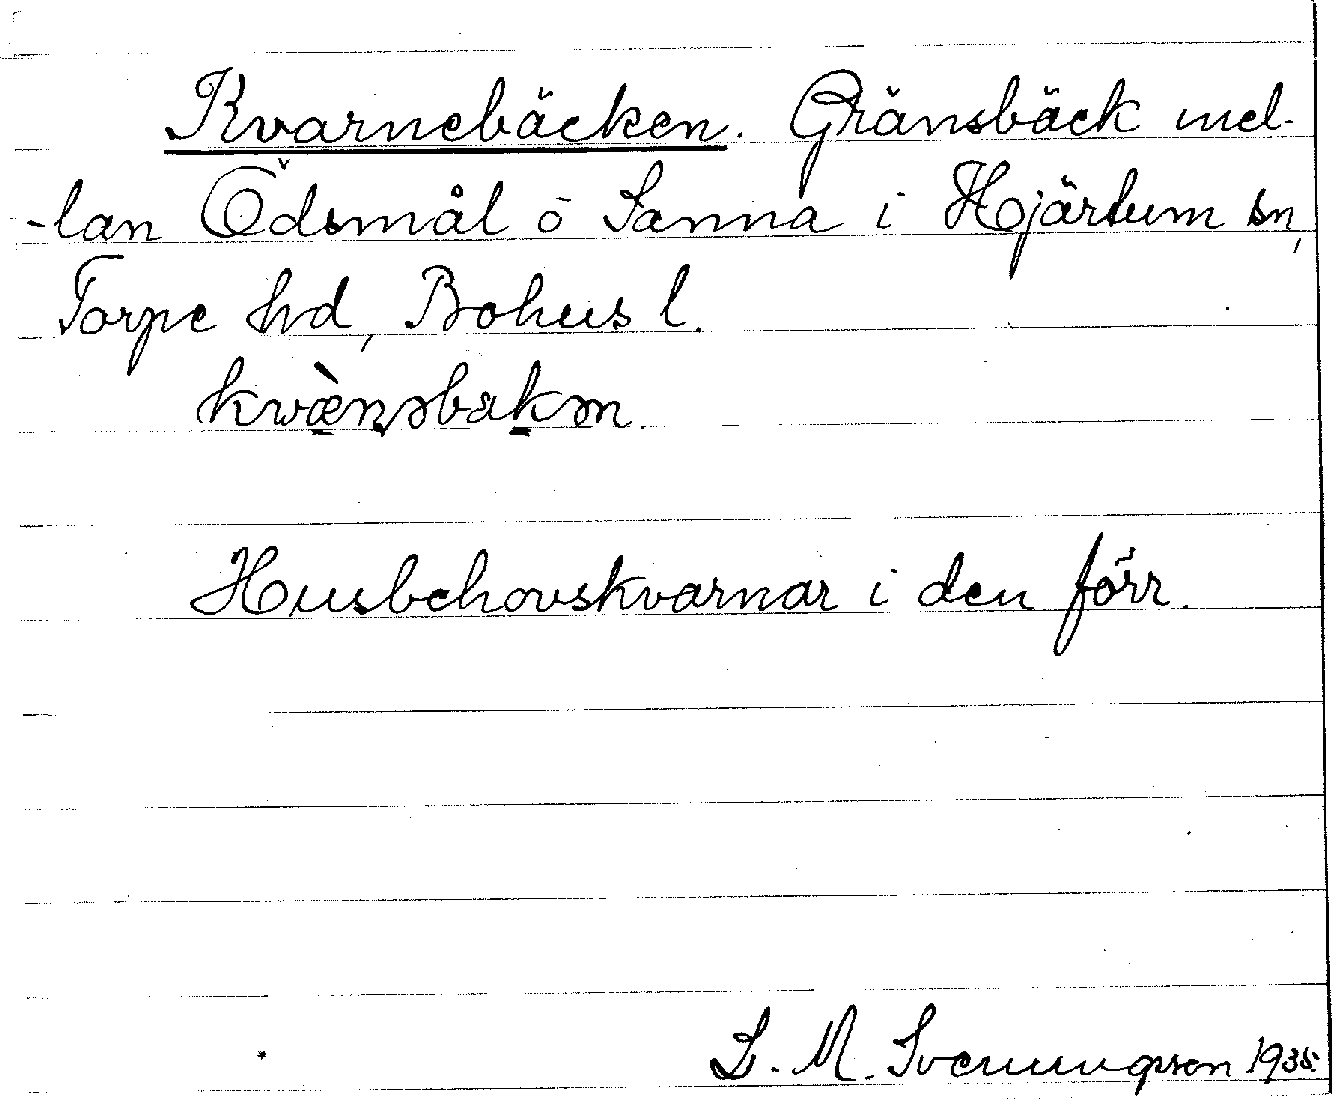 Kvarnebäcken. Gränsbäck mel-
-lan Ödsmål o Sanna i Hjärtum sn,
Torpe hd, Bohus l.
kwæ̀nəbäkən.
Husbehovskvarnar i den förr.
S. M. Svenungsson 1935